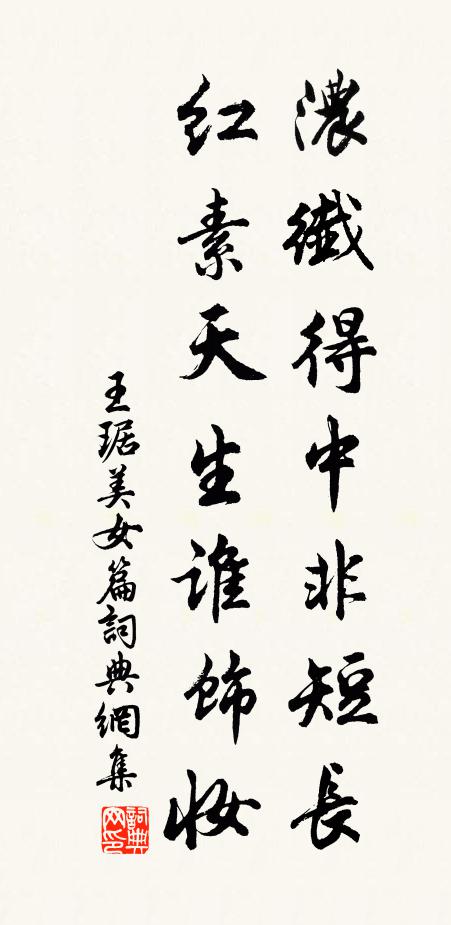 濃纖得中非短長
紅素天生誰飾妝
王琚美女篇詞典網集
詞典網印